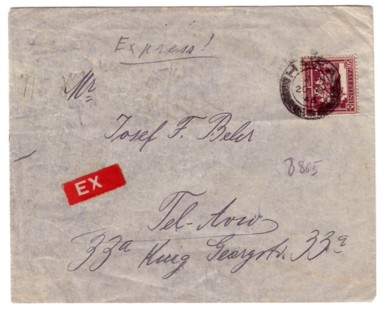 Express!
Mr
Josef F. Behr
EX
B 865
Tel-Aviv
33a King Georgstr. 33a